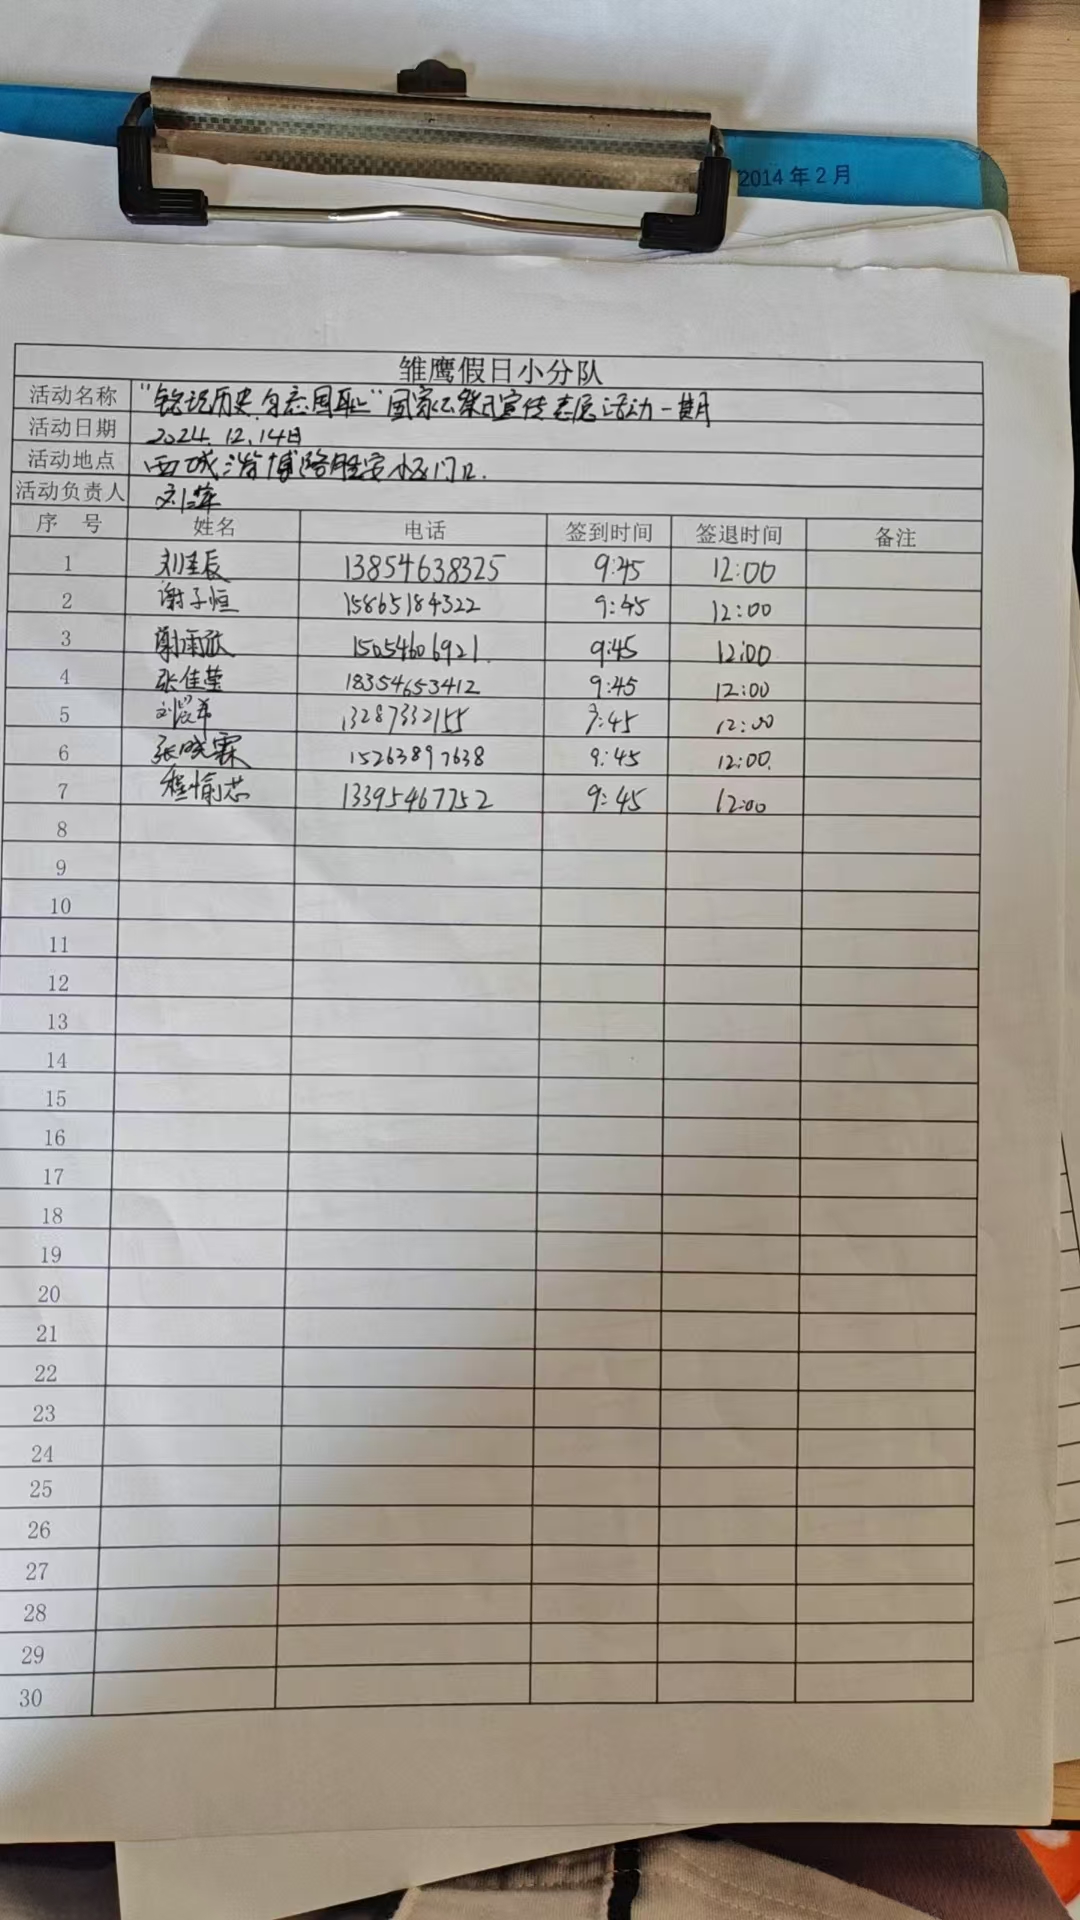 2014年2月
雏鹰假日小分队
活动名称 "铭记历史 勿忘国耻"国家公祭日宣传志愿活动一期
活动日期 2024.12.14日
活动地点 西城 淄博路胜安小区门口.
活动负责人 刘萍
序 号 姓名 电话 签到时间 签退时间 备注
1 刘圭辰 13854638325 9:45 12:00
2 谢子恒 15865184322 9:45 12:00
3 15054606921. 9:45 12:00
4 张佳莹 18354653412 9:45 12:00
5 13287332155 9:45 12:00
6 张晓霖 15263897638 9:45 12:00.
7 程愉芯 13395467752 9:45 12:00
8
9
10
11
12
13
14
15
16
17
18
19
20
21
22
23
24
25
26
27
28
29
30